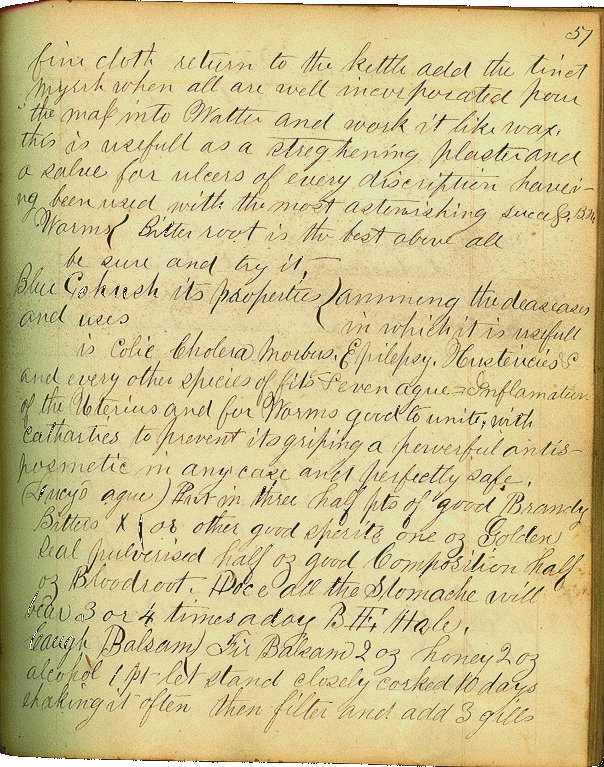 57
fine cloth return to the kettle add the tinct
myrrh when all are well incorporated pour
the maſs into Watter and work it like wax,
this is usefull as a streghening plaster and
a salve for ulcers of every discription havei-
ng been used with the most astonishing succeſs,
Worms { Bitter root is the best above all
be sure and try it,
Blue Cohush its properties } amming the deaseases
and uses in which it is usefull
is colic Cholera Morbus, Epilepsy, Hustericies &
and every other species of fits & even ague = Inflamation
of the Uterius and for Worms good to unite, with
catharties to prevent its griping a powerful antis-
posmetic in any case and perfectly safe.
ague) Put in three half pts of good Brandy
Bitters X or other good sperits one oz Golden
Seal pulverised half oz good Composition half
oz Bloodroot. Doce all the Stomache will
bear 3 or 4 times a day B. F. Hale.
Caugh Balsam) Fir Balsam 2 oz honey 2 oz
alcohol 1 pt let stand closely corked 10 days
shaking it often then filter and add 3 gills